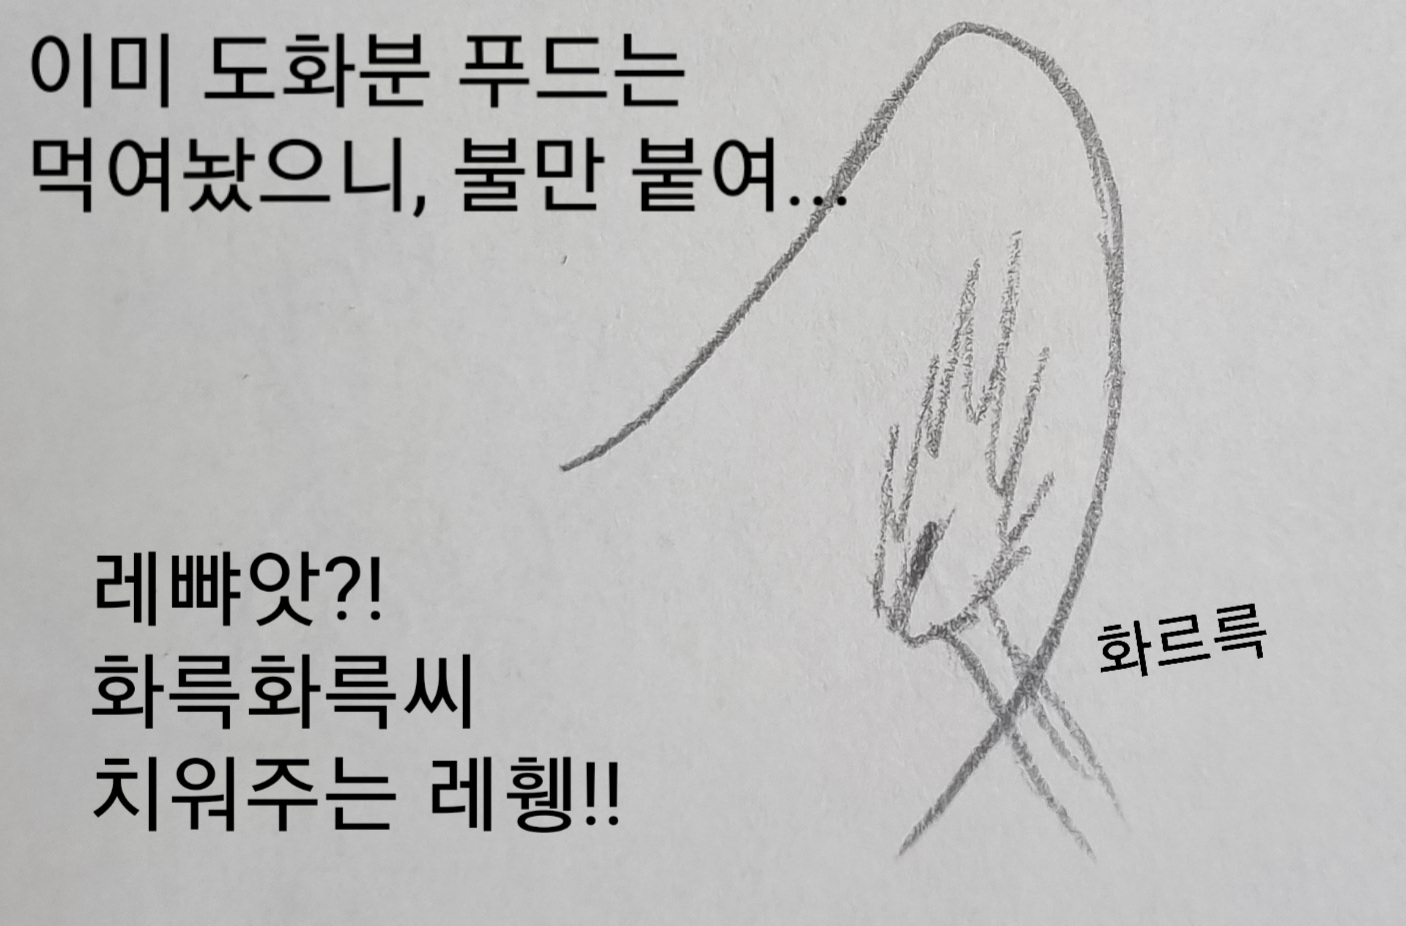 이미 도화분 푸드는
먹여놨으니, 불만 붙여...
레뺘앗?!
화륵화륵씨
치워주는 레휑!!
화르륵